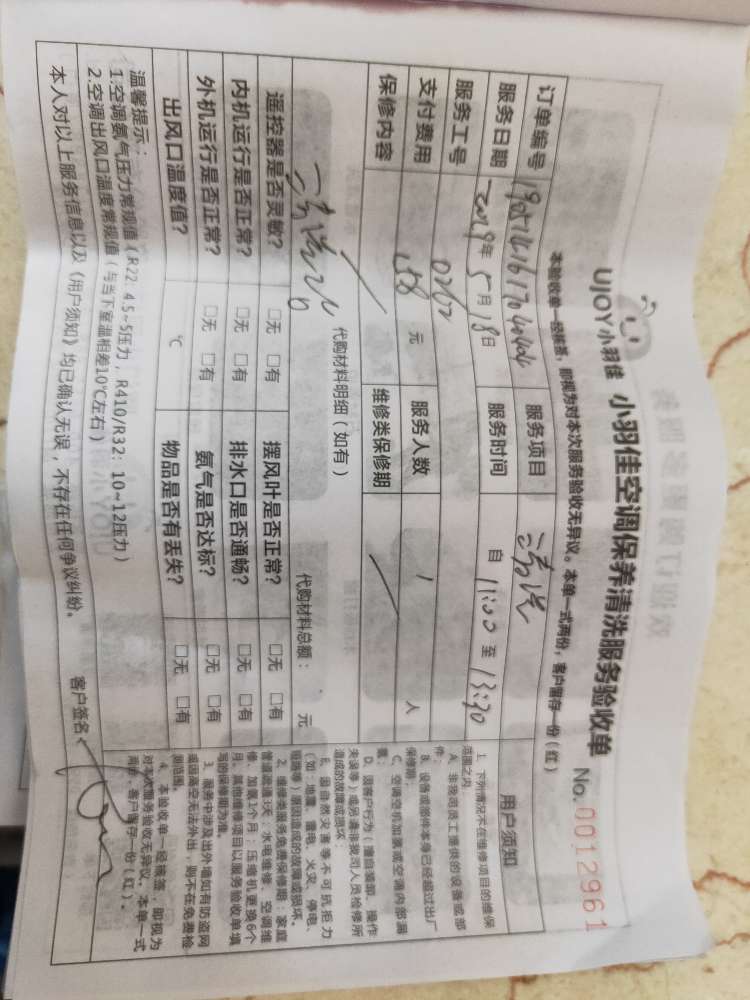 UJOY小羽佳 小羽佳空调保养清洗服务验收单
No. 0012961
本验收单一经核签,即视为对本次服务验收无异议。本单一式两份,客户留存一份(红)
订单编号
服务项目 清洗
服务日期 2019年5月18日
服务时间 自 11:00 至 13:30
服务工号 0262
支付费用 158 元
服务人数 1 人
保修内容 /
维修类保修期 /
代购材料明细(如有)
代购材料总额: 元
遥控器是否灵敏? □无 □有
摆风叶是否正常? □无 □有
内机运行是否正常? □无 □有
排水口是否通畅? □无 □有
外机运行是否正常? □无 □有
氨气是否达标? □无 □有
出风口温度值? ℃
物品是否有丢失? □无 □有
温馨提示:
1.空调氨气压力常规值(R22: 4.5~5压力, R410/R32: 10~12压力)
2.空调出风口温度常规值(与当下室温相差10℃左右)
本人对以上服务信息以及《用户须知》均已确认无误,不存在任何争议纠纷。
客户签名:
用户须知
1、下列情况不在维修项目的维保
范围之内:
A、非我司员工提供的设备或部
件;
B、设备或部件本身已经超过出厂
保修期;
C、空调空机加氨或空调内部漏
氨;
D、因客户行为(擅自装卸、操作
失误等)或另请非我司人员检修所
造成的故障或损坏;
E、因自然灾害等不可抗拒力
(如:地震、雷电、火灾、停电、
阻跳等)原因造成的故障或损坏。
2、维修类服务免费保修期:家庭
管道疏通3天;水电维修、空调维
修、加氨1个月;压缩机更换6个
月。其他维修项目以服务验收单填
写的保修期为准。
3、服务中涉及出外墙如有防盗网
或因高空无法外出,则不在免费检
测范围。
4、本验收单一经核签,即视为
对本次服务验收无异议。本单一式
两份,客户留存一份(红)。